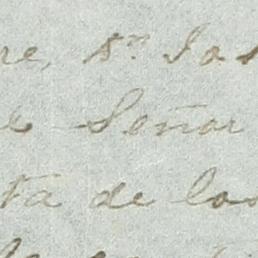 re, Sr. Jos
e Señor
ta de los